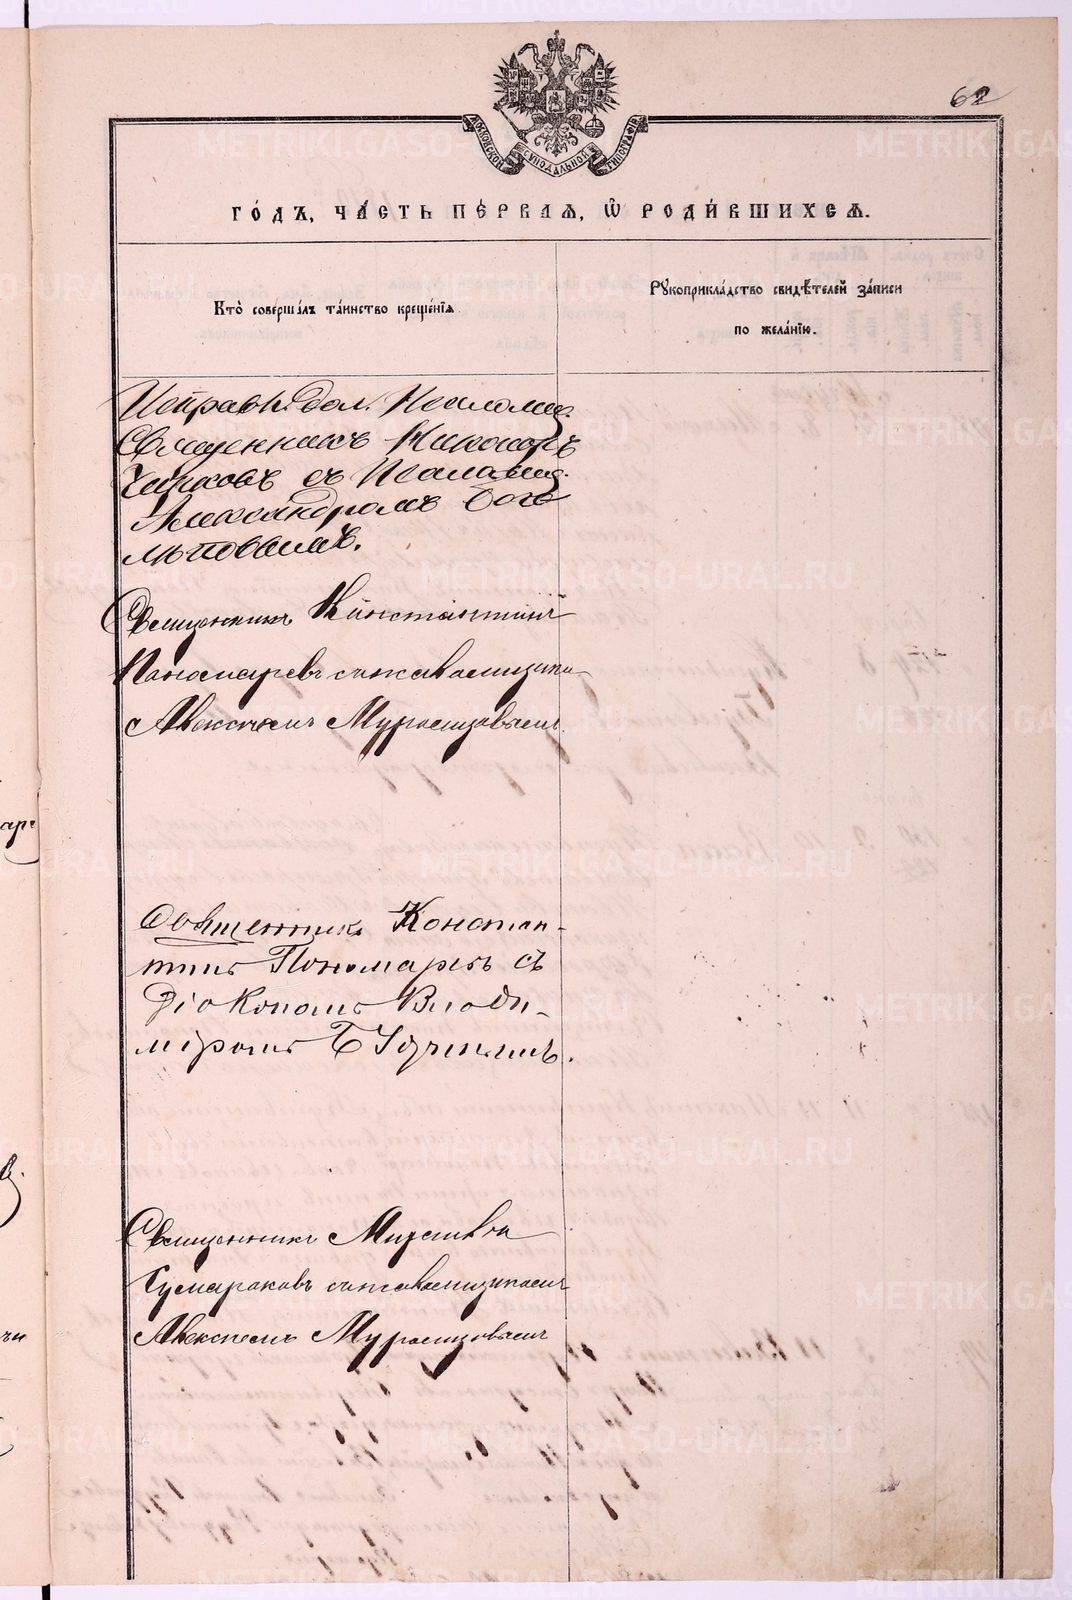 62
МОСКОВСКОЙ СѴНОДАЛЬНОЙ ТИПОГРАФІИ
ГО́ДЪ, ЧА́СТЬ ПЕ́РВАѦ, Ѡ҆ РОДИ́ВШИХСѦ.
Кто̀ соверша́лъ та́инство креще́нїѧ
Рꙋкоприкла́дство свидѣ́телей за́писи
по жела́нїю.
Исправл. дол. Псаломщ.
Священникъ Никоноръ
Чирковъ съ Псаломщ.
Александромъ Бого
лѣповымъ.
Священникъ Константинъ
Пономаревъ съ псаломщико
Алексѣемъ
Священникъ Констан-
тинъ Пономаревъ съ
Діакономъ Влади-
міромъ
Священникъ
съ псаломщикомъ
Алексѣемъ
METRIKI.GASO-URAL.RU